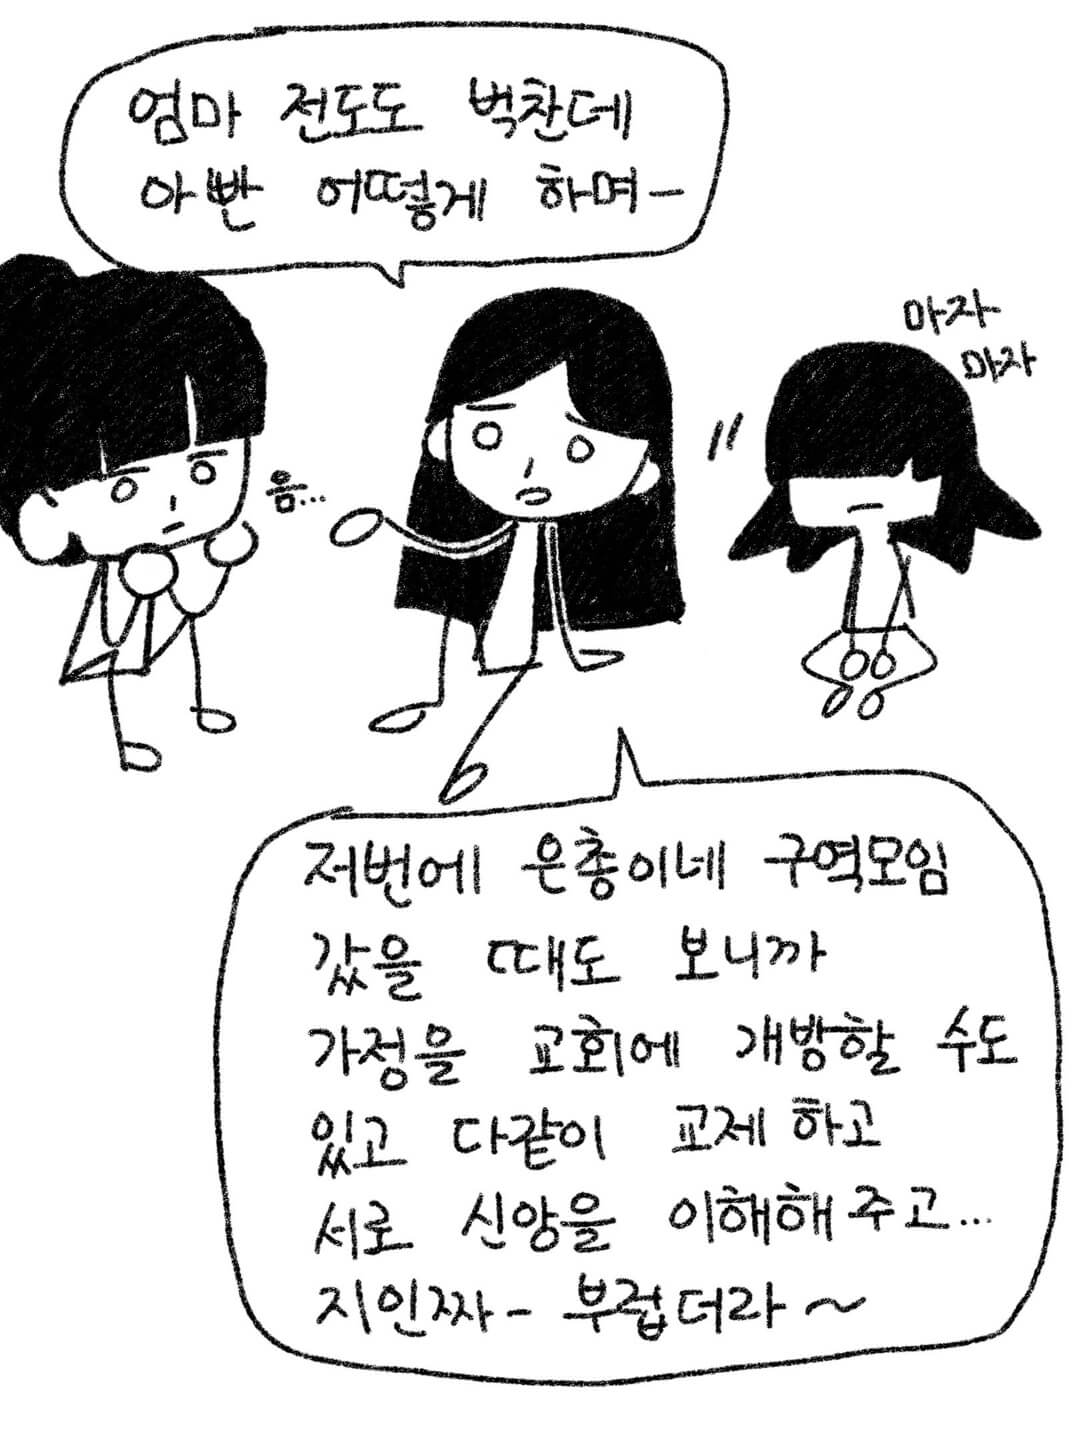 엄마 전도도 벅찬데
아빤 어떻게 하며-
마자
마자
음...
저번에 은총이네 구역모임
갔을 때도 보니까
가정을 교회에 개방할 수도
있고 다같이 교제 하고
서로 신앙을 이해해 주고...
지인짜- 부럽더라~